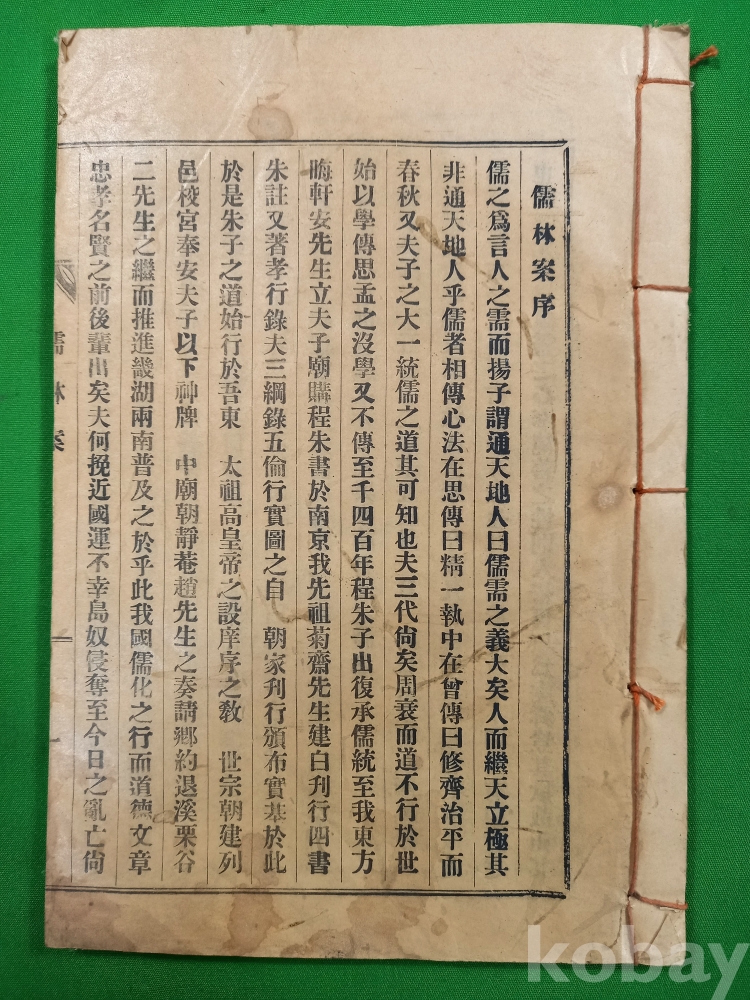 儒林案序
儒之爲言人之需而揚子謂通天地人曰儒需之義大矣人而繼天立極其
非通天地人乎儒者相傳心法在思傳曰精一執中在曾傳曰修齊治平而
春秋又夫子之大一統儒之道其可知也夫三代尙矣周衰而道不行於世
始以學傳思孟之沒學又不傳至千四百年程朱子出復承儒統至我東方
晦軒安先生立夫子廟購程朱書於南京我先祖菊齋先生建白刋行四書
朱註又著孝行錄夫三綱錄五倫行實圖之自 朝家刋行頒布實基於此
於是朱子之道始行於吾東 太祖高皇帝之設庠序之敎 世宗朝建列
邑校宮奉安夫子以下神牌 中廟朝靜菴趙先生之奏請鄕約退溪栗谷
二先生之繼而推進畿湖兩南普及之於乎此我國儒化之行而道德文章
忠孝名賢之前後輩出矣夫何挽近國運不幸島奴侵奪至今日之亂亡尙
儒林案
一
kobay